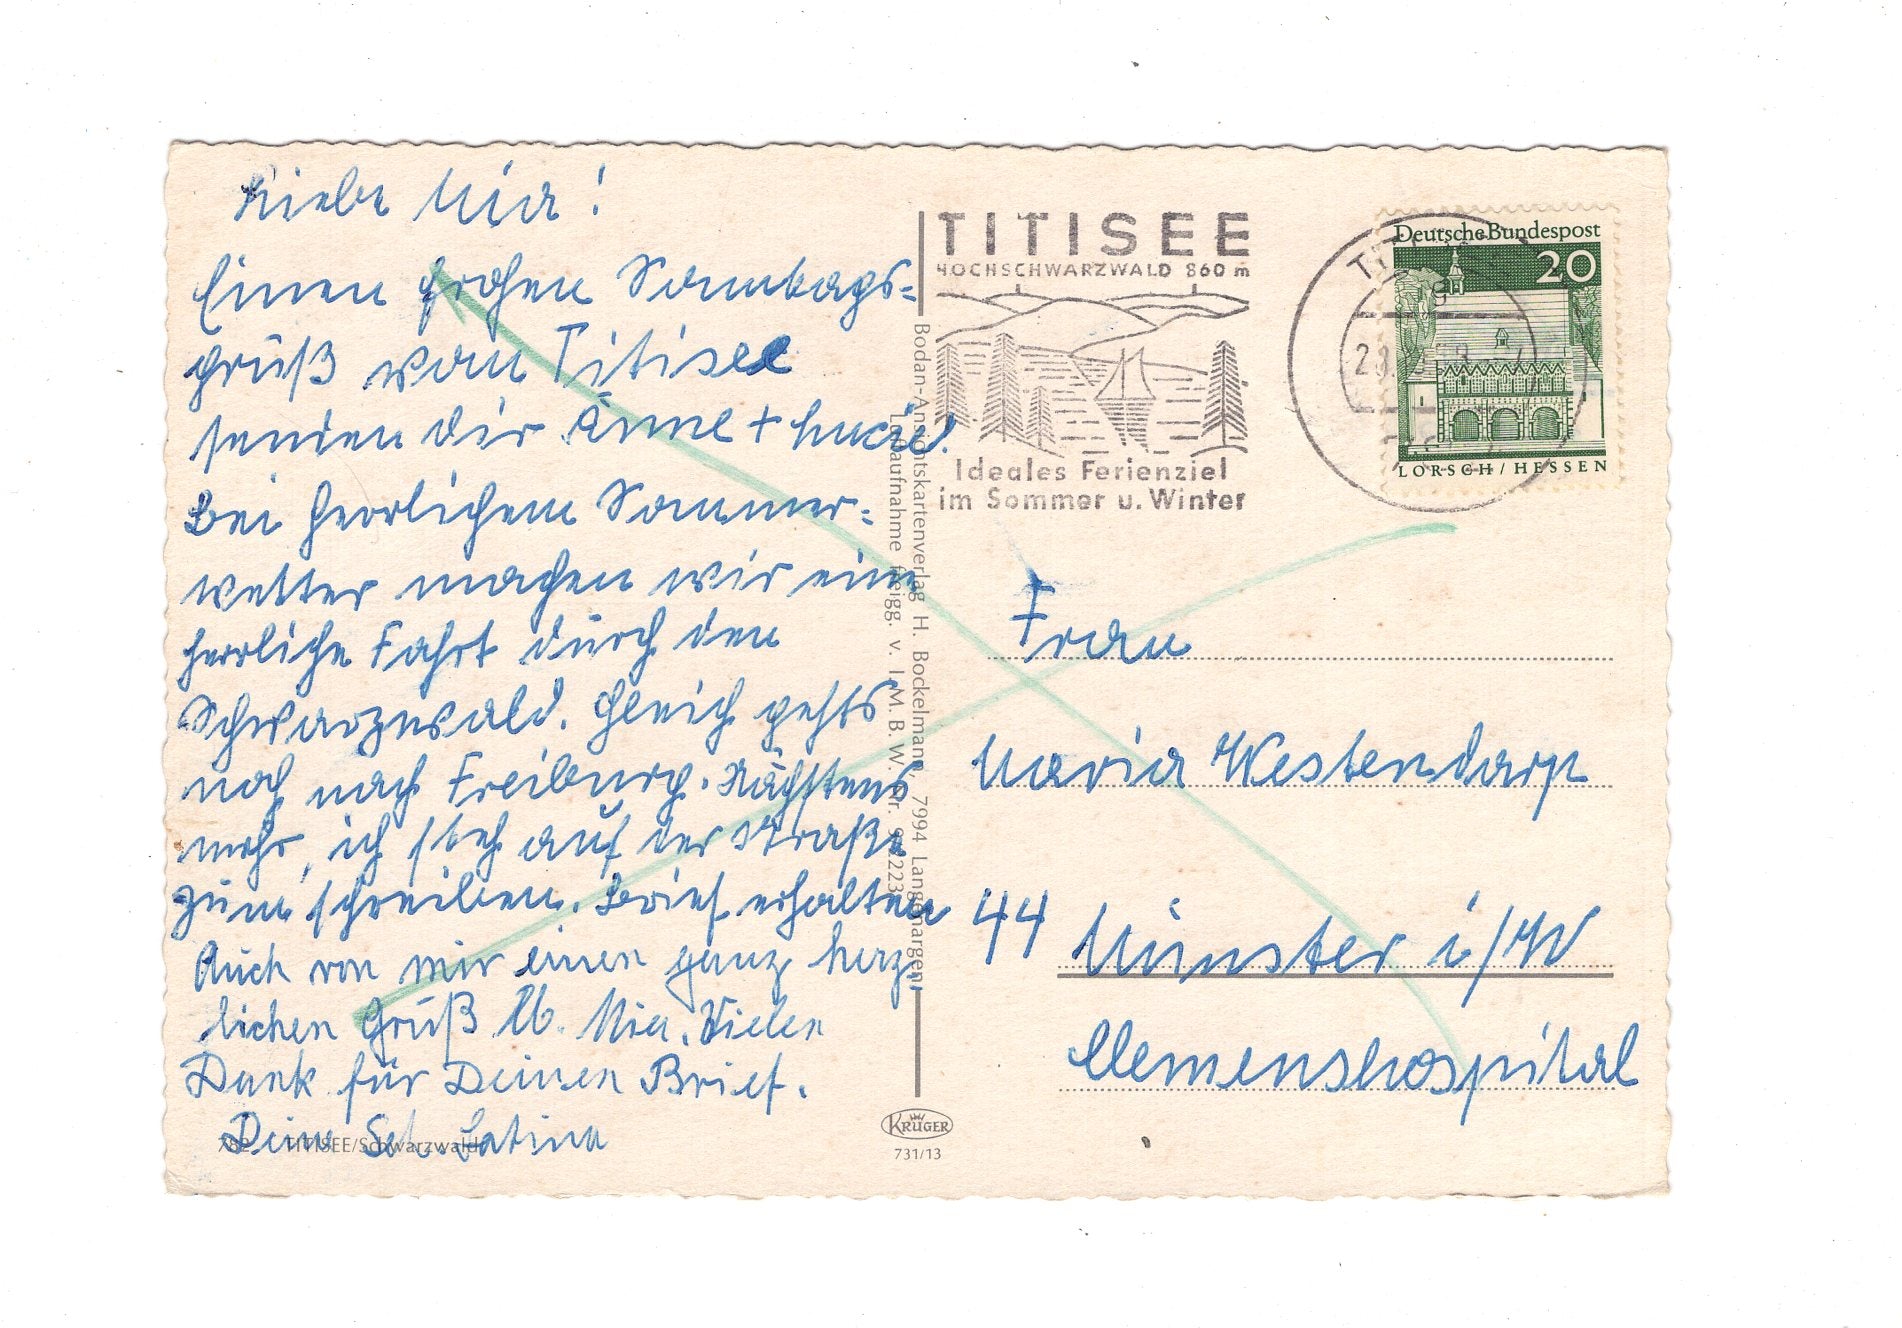 Liebe Mia!
Einen frohen Sonntags=
gruß vom Titisee
senden dir Änne +
Bei herrlichem Sommer=
wetter machen wir eine
herrliche Fahrt durch den
Schwarzwald. Gleich gehts
noch nach Freiburg. Nächstens
mehr, ich steh auf der Straße
zum schreiben. Brief erhalten
Auch von mir einen ganz herz-
lichen Gruß lb. Mia. Vielen
Dank für Deinen Brief.
Deine
TITISEE/Schwarzwald
Bodan-Ansichtskartenverlag H. Bockelmann, 7994 Langenargen
Luftaufnahme freigg. v. I. M. B. W. Nr.
KRÜGER
731/13
TITISEE
HOCHSCHWARZWALD 860 m
Ideales Ferienziel
im Sommer u. Winter
Deutsche Bundespost
20
LORSCH/HESSEN
Frau
Maria Westendarp
44 Münster i/W
Clemenshospital